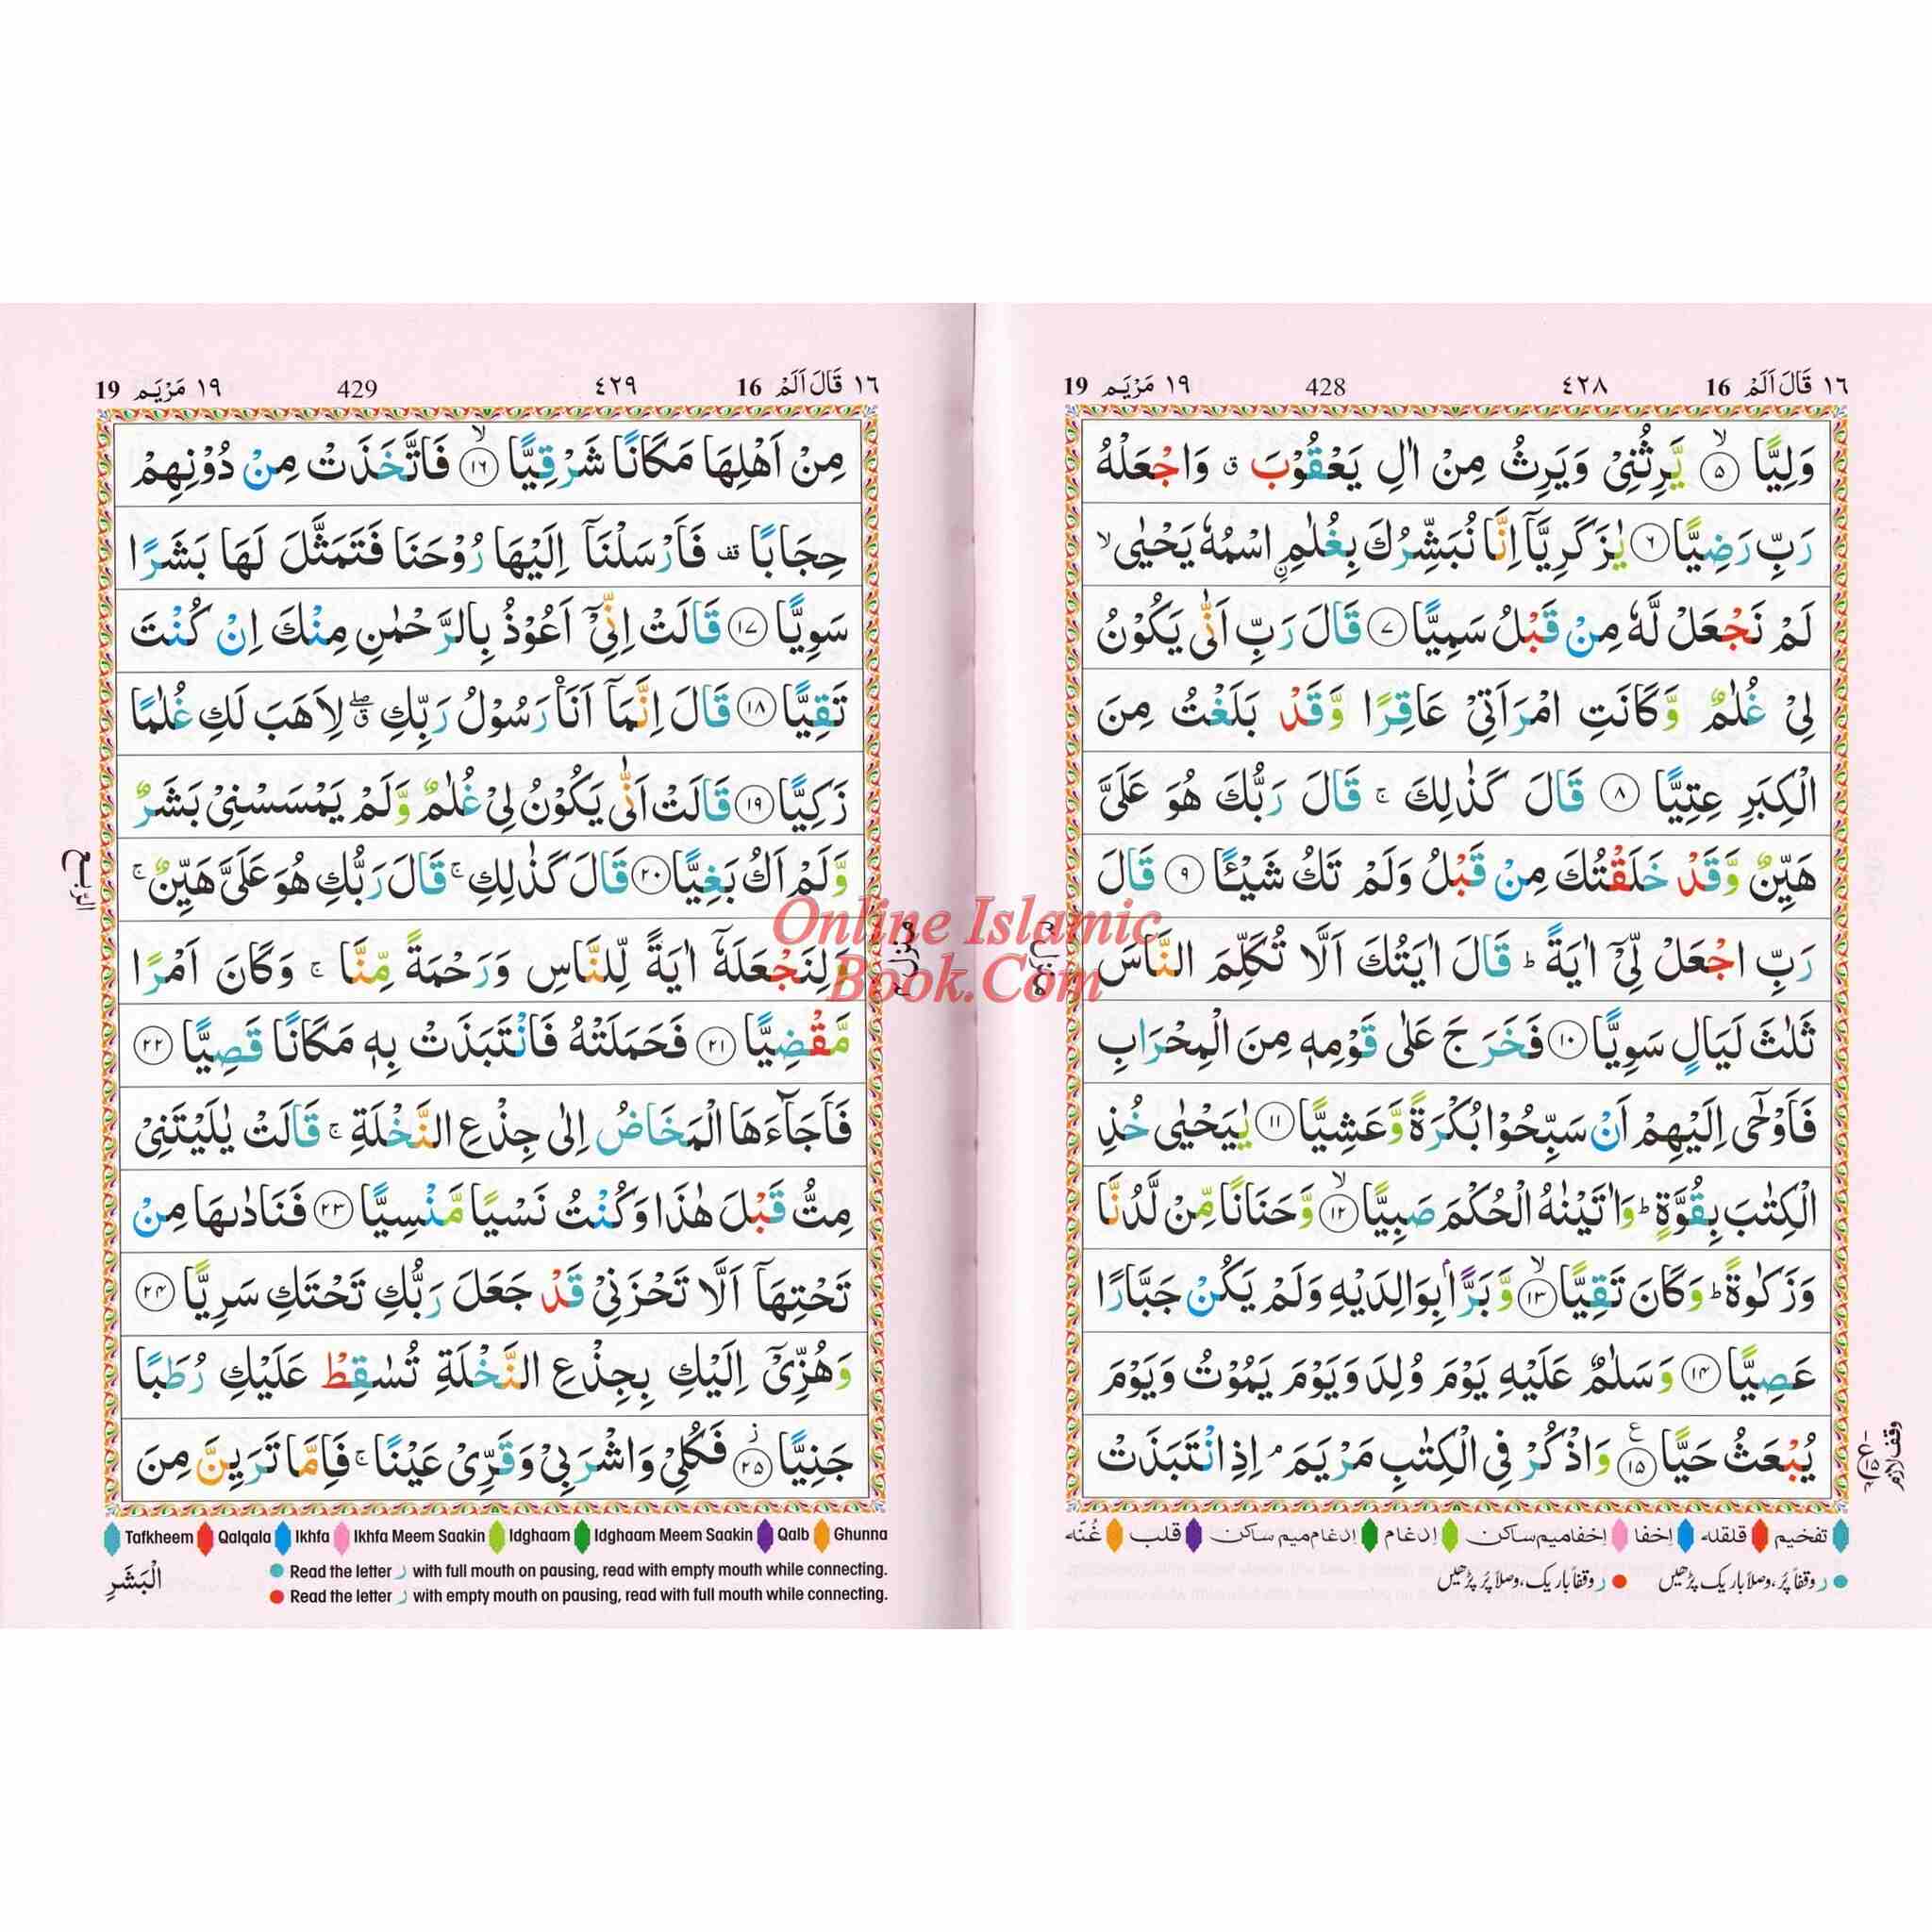 ١٦ قَالَ اَلَمْ 16 ٤٢٨ 428 ١٩ مَرْيَم 19
وَلِيًّا ۙ﴿۵﴾ يَّرِثُنِيْ وَيَرِثُ مِنْ اٰلِ يَعْقُوْبَ ۖق وَاجْعَلْهُ
رَبِّ رَضِيًّا ﴿۶﴾ يٰزَكَرِيَّاۤ اِنَّا نُبَشِّرُكَ بِغُلٰمِ ۨاسْمُهٗ يَحْيٰى ۙ
لَمْ نَجْعَلْ لَّهٗ مِنْ قَبْلُ سَمِيًّا ﴿۷﴾ قَالَ رَبِّ اَنّٰى يَكُوْنُ
لِيْ غُلٰمٌ وَّكَانَتِ امْرَاَتِيْ عَاقِرًا وَّقَدْ بَلَغْتُ مِنَ
الْكِبَرِ عِتِيًّا ﴿۸﴾ قَالَ كَذٰلِكَ ۚ قَالَ رَبُّكَ هُوَ عَلَيَّ
هَيِّنٌ وَّقَدْ خَلَقْتُكَ مِنْ قَبْلُ وَلَمْ تَكُ شَيْـًٔا ﴿۹﴾ قَالَ
رَبِّ اجْعَلْ لِّيْۤ اٰيَةً ؕ قَالَ اٰيَتُكَ اَلَّا تُكَلِّمَ النَّاسَ
ثَلٰثَ لَيَالٍ سَوِيًّا ﴿۱۰﴾ فَخَرَجَ عَلٰى قَوْمِهٖ مِنَ الْمِحْرَابِ
فَاَوْحٰۤى اِلَيْهِمْ اَنْ سَبِّحُوْا بُكْرَةً وَّعَشِيًّا ﴿۱۱﴾ يٰيَحْيٰى خُذِ
الْكِتٰبَ بِقُوَّةٍ ؕ وَاٰتَيْنٰهُ الْحُكْمَ صَبِيًّا ۙ﴿۱۲﴾ وَّحَنَانًا مِّنْ لَّدُنَّا
وَزَكٰوةً ؕ وَكَانَ تَقِيًّا ۙ﴿۱۳﴾ وَّبَرًّۢا بِوَالِدَيْهِ وَلَمْ يَكُنْ جَبَّارًا
عَصِيًّا ﴿۱۴﴾ وَسَلٰمٌ عَلَيْهِ يَوْمَ وُلِدَ وَيَوْمَ يَمُوْتُ وَيَوْمَ
يُبْعَثُ حَيًّا ﴿۱۵﴾ع وَاذْكُرْ فِي الْكِتٰبِ مَرْيَمَ ۘ اِذِ انْتَبَذَتْ
وقف لازم
تفخیم قلقله إخفا إخفامیم ساكن إدغام إدغام میم ساكن قلب غُنّه
ر وقفاً پُر، وصلاً باریک پڑھیں ر وقفاً باریک، وصلاً پُر پڑھیں
١٦ قَالَ اَلَمْ 16 ٤٢٩ 429 ١٩ مَرْيَم 19
مِنْ اَهْلِهَا مَكَانًا شَرْقِيًّا ۙ﴿۱۶﴾ فَاتَّخَذَتْ مِنْ دُوْنِهِمْ
حِجَابًا ۪قف فَاَرْسَلْنَاۤ اِلَيْهَا رُوْحَنَا فَتَمَثَّلَ لَهَا بَشَرًا
سَوِيًّا ﴿۱۷﴾ قَالَتْ اِنِّيْۤ اَعُوْذُ بِالرَّحْمٰنِ مِنْكَ اِنْ كُنْتَ
تَقِيًّا ﴿۱۸﴾ قَالَ اِنَّمَاۤ اَنَا۠ رَسُوْلُ رَبِّكِ ۖق لِاَهَبَ لَكِ غُلٰمًا
زَكِيًّا ﴿۱۹﴾ قَالَتْ اَنّٰى يَكُوْنُ لِيْ غُلٰمٌ وَّلَمْ يَمْسَسْنِيْ بَشَرٌ
وَّلَمْ اَكُ بَغِيًّا ﴿۲۰﴾ قَالَ كَذٰلِكِ ۚ قَالَ رَبُّكِ هُوَ عَلَيَّ هَيِّنٌ ۚ
وَلِنَجْعَلَهٗۤ اٰيَةً لِّلنَّاسِ وَرَحْمَةً مِّنَّا ۚ وَكَانَ اَمْرًا
مَّقْضِيًّا ﴿۲۱﴾ فَحَمَلَتْهُ فَانْتَبَذَتْ بِهٖ مَكَانًا قَصِيًّا ﴿۲۲﴾
فَاَجَآءَهَا الْمَخَاضُ اِلٰى جِذْعِ النَّخْلَةِ ۚ قَالَتْ يٰلَيْتَنِيْ
مِتُّ قَبْلَ هٰذَا وَكُنْتُ نَسْيًا مَّنْسِيًّا ﴿۲۳﴾ فَنَادٰىهَا مِنْ
تَحْتِهَاۤ اَلَّا تَحْزَنِيْ قَدْ جَعَلَ رَبُّكِ تَحْتَكِ سَرِيًّا ﴿۲۴﴾
وَهُزِّيْۤ اِلَيْكِ بِجِذْعِ النَّخْلَةِ تُسٰقِطْ عَلَيْكِ رُطَبًا
جَنِيًّا ؗ﴿۲۵﴾ فَكُلِيْ وَاشْرَبِيْ وَقَرِّيْ عَيْنًا ۚ فَاِمَّا تَرَيِنَّ مِنَ
الربع
منزل ٤
Tafkheem Qalqala Ikhfa Ikhfa Meem Saakin Idghaam Idghaam Meem Saakin Qalb Ghunna
Read the letter ر with full mouth on pausing, read with empty mouth while connecting.
Read the letter ر with empty mouth on pausing, read with full mouth while connecting.
الْبَشَرِ
Online Islamic
Book.Com